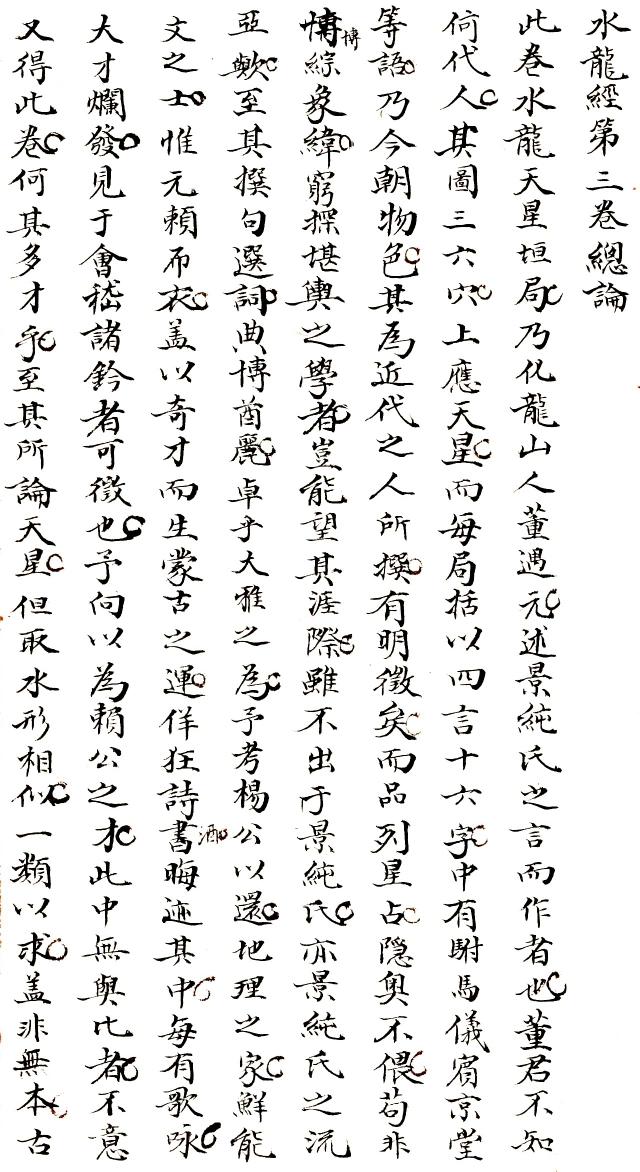 水龍經第三卷總論
此卷水龍天星垣局乃化龍山人董遇元述景純氏之言而作者也董君不知
何代人其圖三六穴上應天星而每局括以四言十六字中有駙馬儀賓京堂
等語乃今朝物色其為近代之人所撰有明徵矣而品列星占隐奥不偎苟非
博綜象緯窮探堪輿之學者豈能望其涯際雖不出于景純氏亦景純氏之流
亞歟至其撰句選詞典博酋麗卓乎大雅之為予考楊公以還地理之家鮮能
文之士惟元賴布衣盖以奇才而生蒙古之運佯狂詩酒晦迹其中每有歌咏
大才爛發見于會嵇諸鈐者可徵也予向以為賴公之才此中無與比者不意
又得此卷何其多才乎至其所論天星但取水形相似一類以求盖非無本古